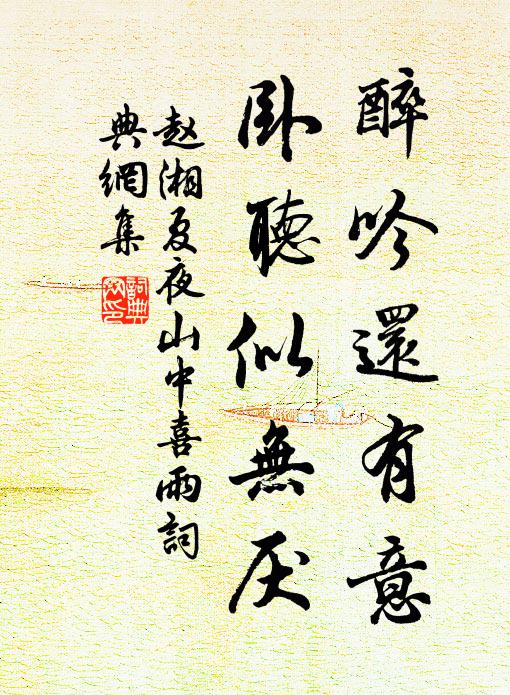 醉吟還有意
卧聽似無厌
赵湘夏夜山中喜雨詞
典網集
詞典
网印